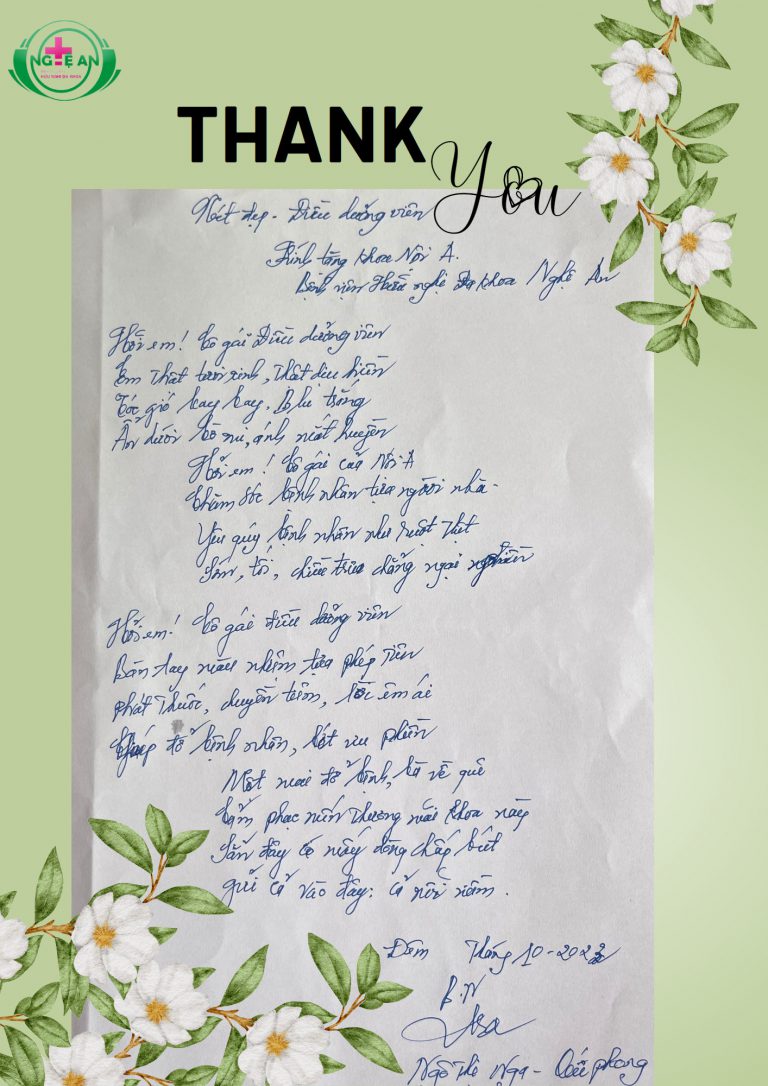 NGHỆ AN
HỮU NGHỊ ĐA KHOA
THANK You
Nét đẹp - Điều dưỡng viên
Kính tặng khoa Nội A.
Bệnh viện Hữu nghị Đa khoa Nghệ An
Hỡi em! Cô gái Điều dưỡng viên
Em thật tươi xinh, thật dịu hiền
Tóc gió bay bay, Blu trắng
Ẩn dưới bờ mi, ánh mắt huyền
Hỡi em! Cô gái của Nội A
Chăm sóc bệnh nhân tựa người nhà.
Yêu quý bệnh nhân như ruột thịt
Sớm, tối, chiều trưa chẳng ngại
Hỡi em! Cô gái điều dưỡng viên
Bàn tay màu nhiệm tựa phép tiên
Phát thuốc, chuyền tiêm, lời êm ái
Giúp đỡ bệnh nhân, bớt ưu phiền
Một mai đỡ bệnh, bà về quê
Cảm phục mến thương mãi khoa này
Sẵn đây có mấy dòng chấp bút
gửi cả vào đây: cả nỗi niềm.
Đêm Tháng 10-2023
B.N
Nga
Ngô Thị Nga - Quế phong